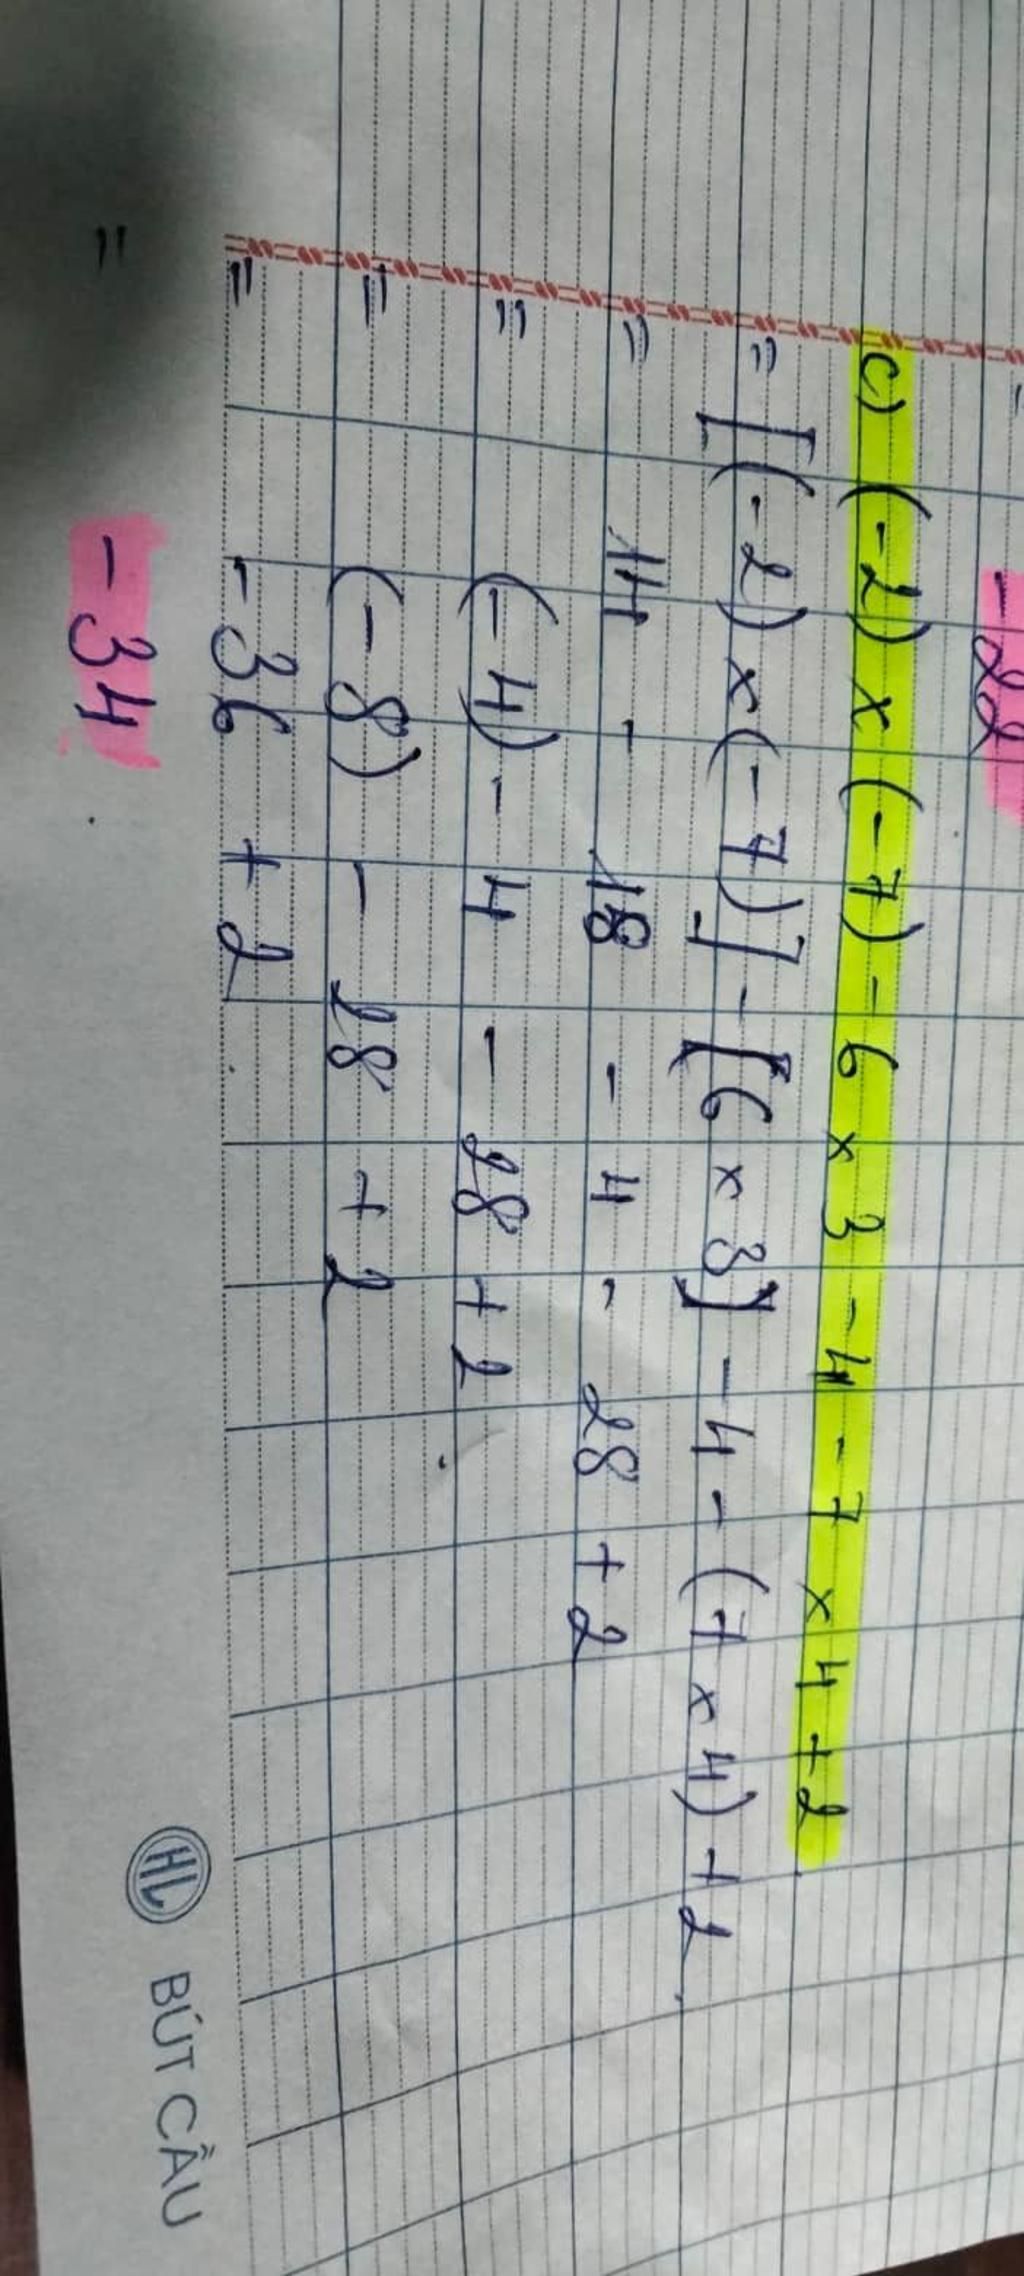 -22
c) (-2) x (-7) - 6 x 3 - 4 - 7 x 4 + 2
= [(-2) x (-7)] - [6 x 3] - 4 - (7 x 4) + 2
= 14 - 18 - 4 - 28 + 2
= (-4) - 4 - 28 + 2
= (-8) - 28 + 2
= -36 + 2
= -34
HL BÚT CẦU